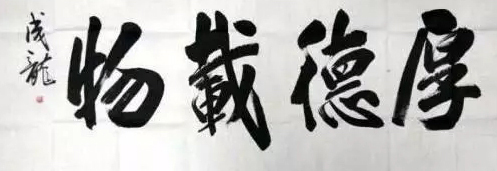 厚德載物
成龍